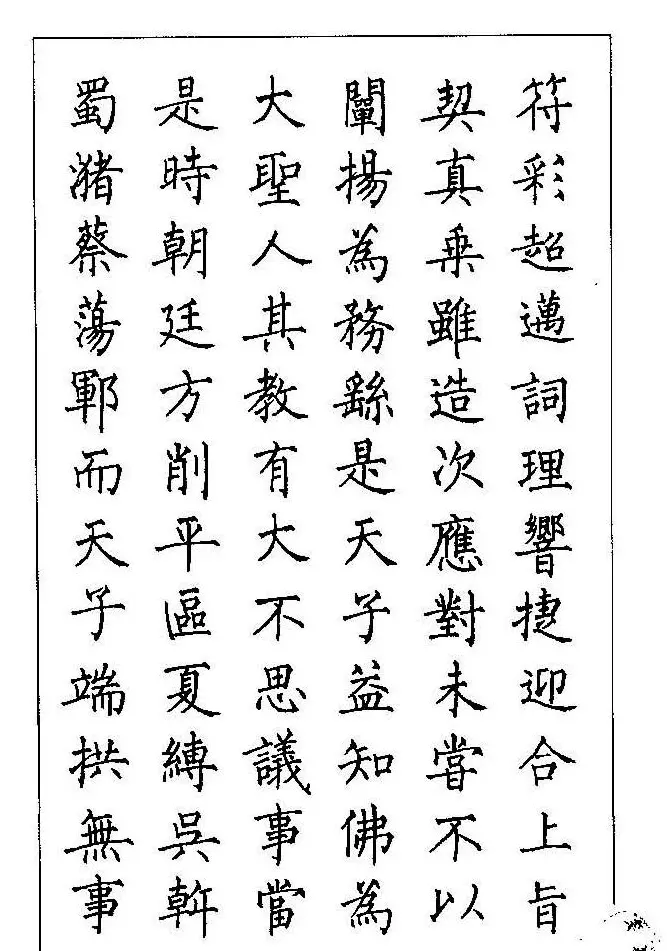 符彩超邁詞理響捷迎合上旨
契真乗雖造次應對未嘗不以
闡揚為務繇是天子益知佛為
大聖人其教有大不思議事當
是時朝廷方削平區夏縛吳斡
蜀瀦蔡蕩鄆而天子端拱無事